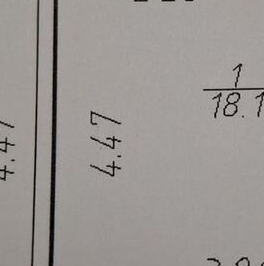 4.47
4.47
1
18.1